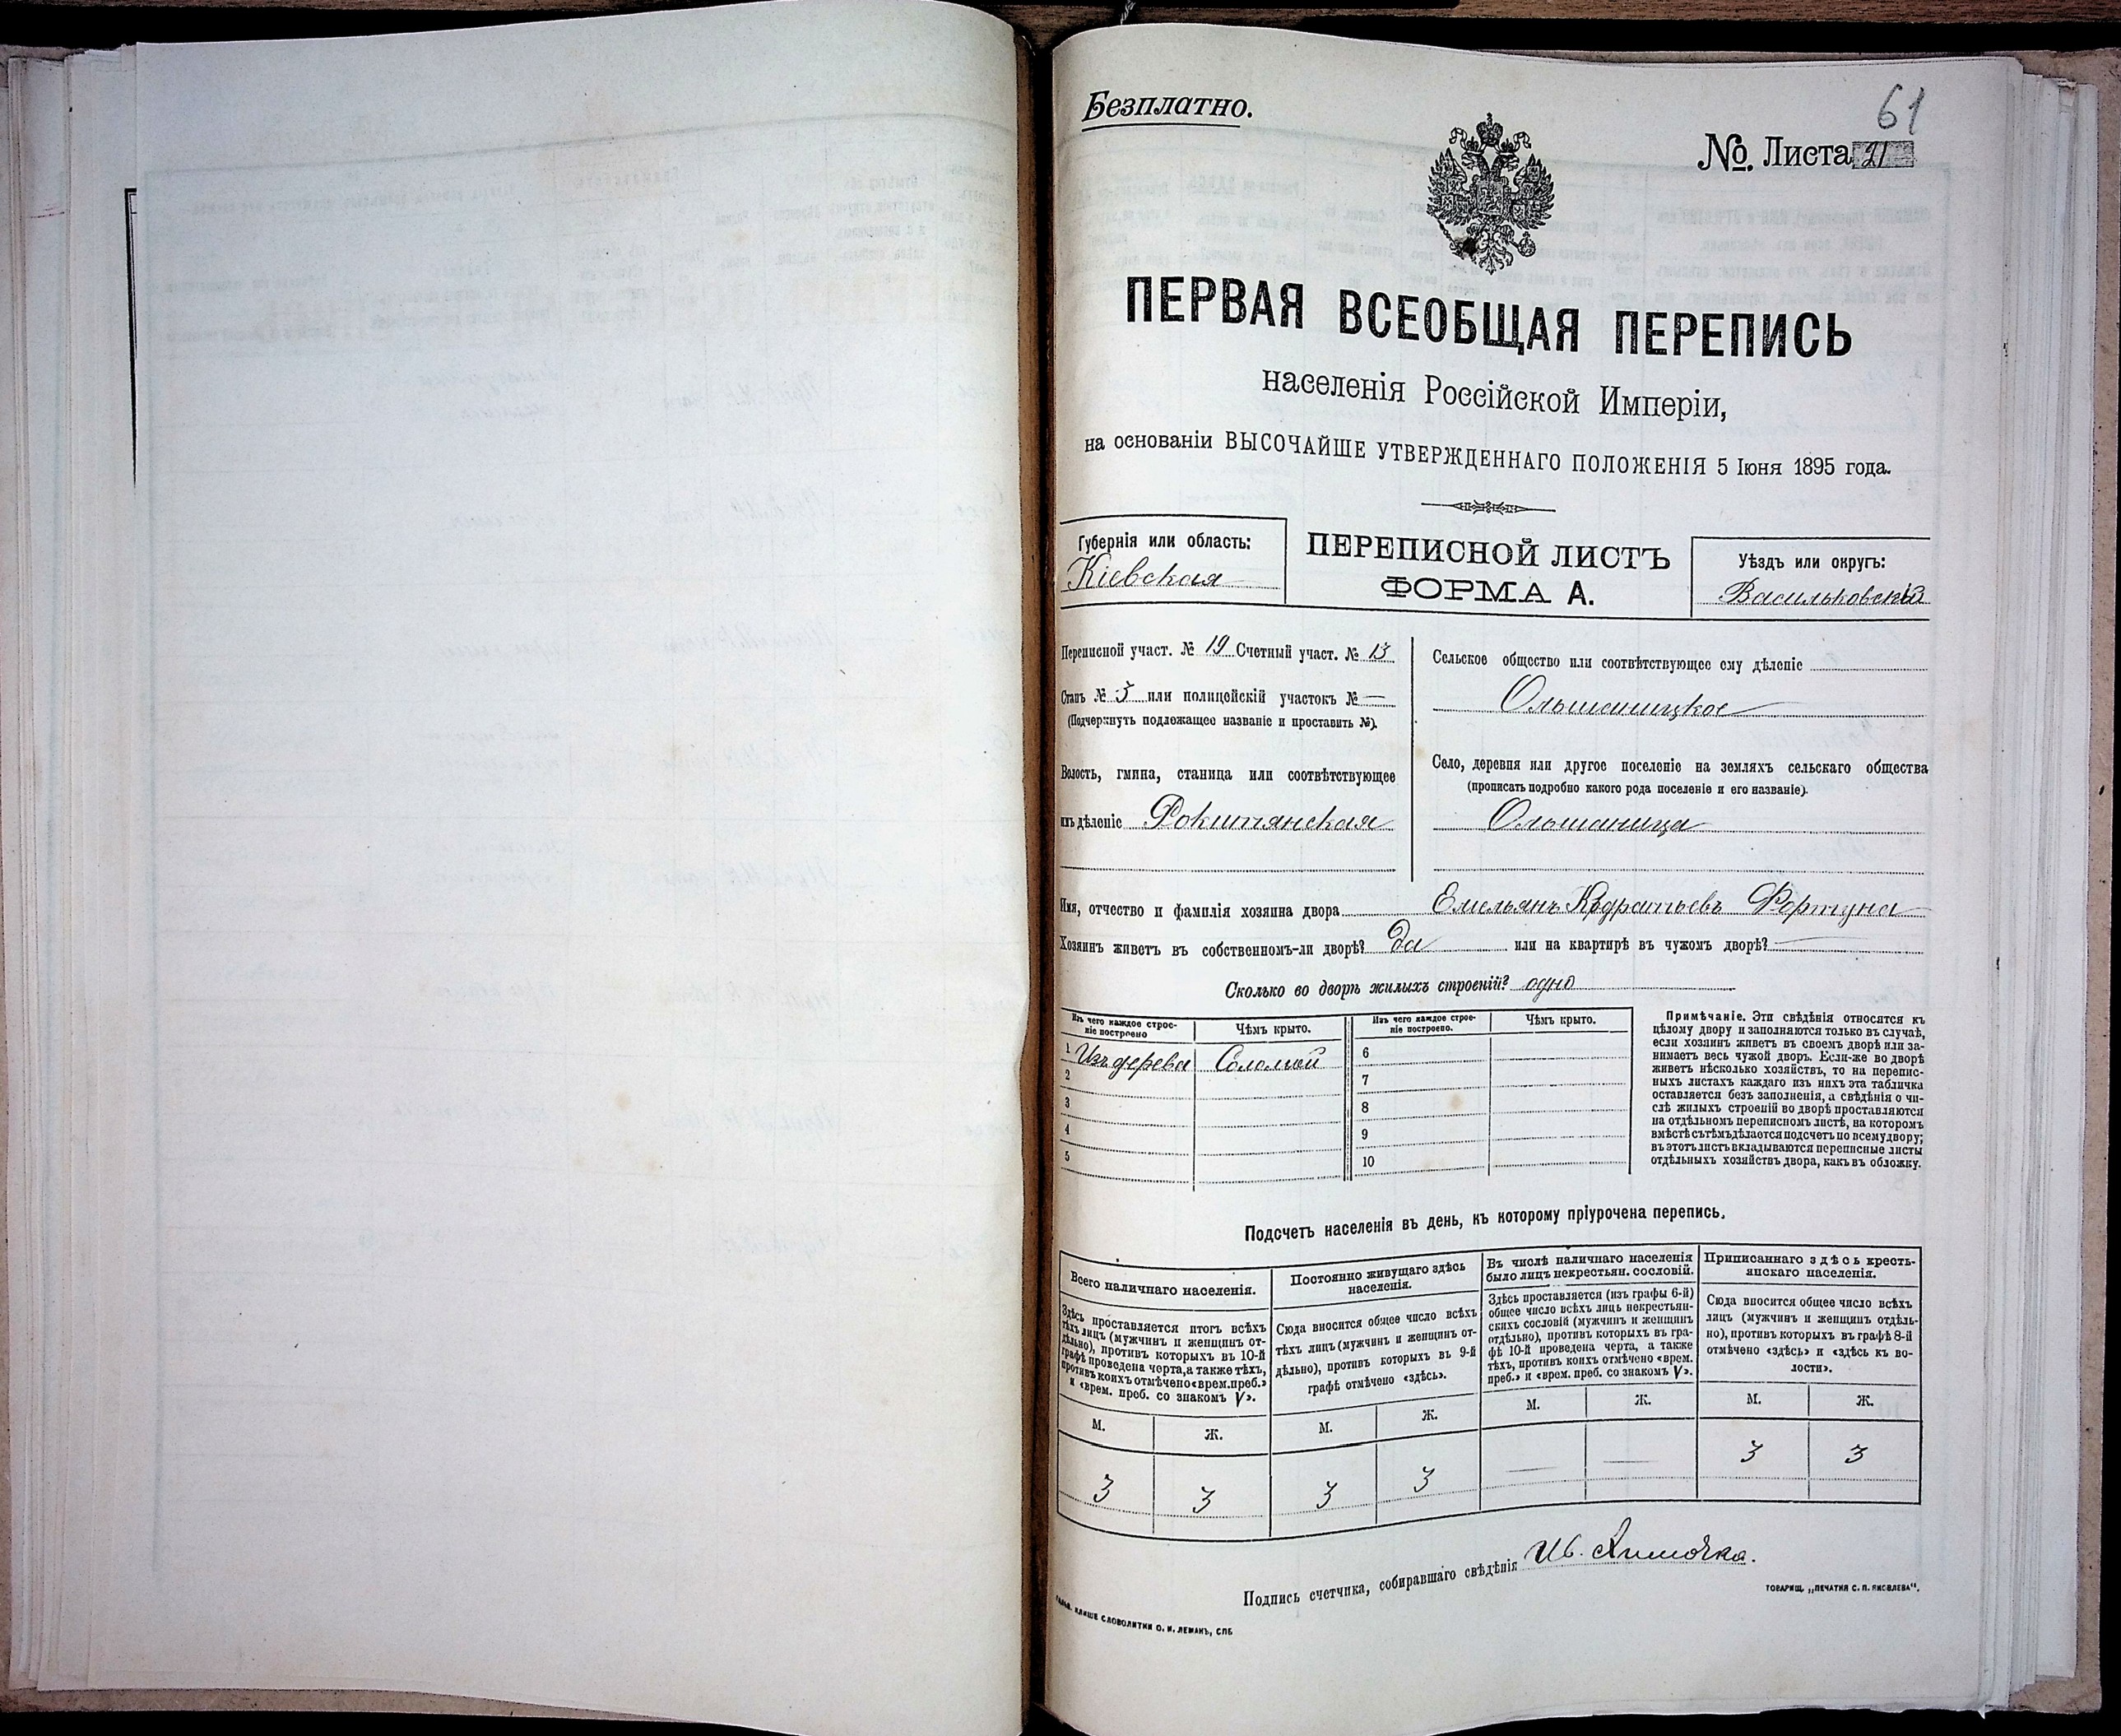 61
Безплатно.
№. Листа 21
ПЕРВАЯ ВСЕОБЩАЯ ПЕРЕПИСЬ
населенія Россійской Имперіи,
на основаніи ВЫСОЧАЙШЕ УТВЕРЖДЕННАГО ПОЛОЖЕНІЯ 5 Іюня 1895 года.
Губернія или область:
Кіевская
ПЕРЕПИСНОЙ ЛИСТЪ
ФОРМА А.
Уѣздъ или округъ:
Васильковскій
Переписной участ. № 19 Счетный участ. № 13
Станъ № 3 или полицейскій участокъ № —
(Подчеркнуть подлежащее названіе и проставить №).
Волость, гмина, станица или соотвѣтствующее
имъ дѣленіе Рокитянская
Сельское общество или соотвѣтствующее ему дѣленіе
Ольшаницкое
Село, деревня или другое поселеніе на земляхъ сельскаго общества
(прописать подробно какого рода поселеніе и его названіе).
Ольшаница
Имя, отчество и фамилія хозяина двора Емельянъ Кодратьевъ Фортуна
Хозяинъ живетъ въ собственномъ-ли дворѣ? Да или на квартирѣ въ чужомъ дворѣ? —
Сколько во дворѣ жилыхъ строеній? одно
Изъ чего каждое строе-
ніе построено
Чѣмъ крыто.
Изъ чего каждое строе-
ніе построено.
Чѣмъ крыто.
1 Изъ дерева Соломой 6
2 7
3 8
4 9
5 10
Примѣчаніе. Эти свѣдѣнія относятся къ
цѣлому двору и заполняются только въ случаѣ,
если хозяинъ живетъ въ своемъ дворѣ или за-
нимаетъ весь чужой дворъ. Если-же во дворѣ
живетъ нѣсколько хозяйствъ, то на перепис-
ныхъ листахъ каждаго изъ нихъ эта табличка
оставляется безъ заполненія, а свѣдѣнія о чи-
слѣ жилыхъ строеній во дворѣ проставляются
на отдѣльномъ переписномъ листѣ, на которомъ
вмѣстѣ съ тѣмъ дѣлается подсчетъ по всему двору;
въ этотъ листъ вкладываются переписные листы
отдѣльныхъ хозяйствъ двора, какъ въ обложку.
Подсчетъ населенія въ день, къ которому пріурочена перепись.
Всего наличнаго населенія.
Здѣсь проставляется итогъ всѣхъ
тѣхъ лицъ (мужчинъ и женщинъ от-
дѣльно), противъ которыхъ въ 10-й
графѣ проведена черта, а также тѣхъ,
противъ коихъ отмѣчено «врем. преб.»
и «врем. преб. со знакомъ V».
М. Ж.
3 3
Постоянно живущаго здѣсь
населенія.
Сюда вносится общее число всѣхъ
тѣхъ лицъ (мужчинъ и женщинъ от-
дѣльно), противъ которыхъ въ 9-й
графѣ отмѣчено «здѣсь».
М. Ж.
3 3
Въ числѣ наличнаго населенія
было лицъ некрестьян. сословій.
Здѣсь проставляется (изъ графы 6-й)
общее число всѣхъ лицъ некрестьян-
скихъ сословій (мужчинъ и женщинъ
отдѣльно), противъ которыхъ въ гра-
фѣ 10-й проведена черта, а также
тѣхъ, противъ коихъ отмѣчено «врем.
преб.» и «врем. преб. со знакомъ V».
М. Ж.
— —
Приписаннаго здѣсь кресть-
янскаго населенія.
Сюда вносится общее число всѣхъ
лицъ (мужчинъ и женщинъ отдѣль-
но), противъ которыхъ въ графѣ 8-й
отмѣчено «здѣсь» и «здѣсь къ во-
лости».
М. Ж.
3 3
Подпись счетчика, собиравшаго свѣдѣнія Ив.
КЛИШЕ СЛОВОЛИТНИ О. И. ЛЕМАНЪ, СПБ
ТОВАРИЩ. „ПЕЧАТНЯ С. П. ЯКОВЛЕВА".